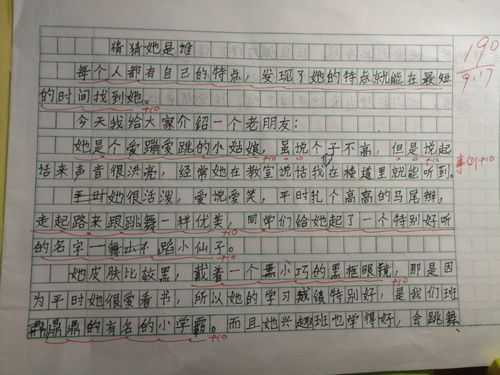 猜猜她是谁
190
9.17
每个人都有自己的特点，发现了她的特点就能在最短
的时间找到她。
+10
今天我给大家介绍一个老朋友：
她是个爱蹦爱跳的小姑娘，虽说个子不高，但是说起
话来声音很洪亮，经常她在教室说话我在楼道里就能听到。
平时她很活泼，爱说爱笑，平时扎个高高的马尾辫，
走起路来跟跳舞一样优美，同学们给她起了一个特别好听
的名字一舞小仙子。
+10
她皮肤比较黑，戴着一个小巧的黑框眼镜，那是因
为平时她很爱看书，所以她的学习成绩特别好，是我们班
鼎鼎的有名的小学霸。而且她兴趣班也学得好，会跳舞
+10